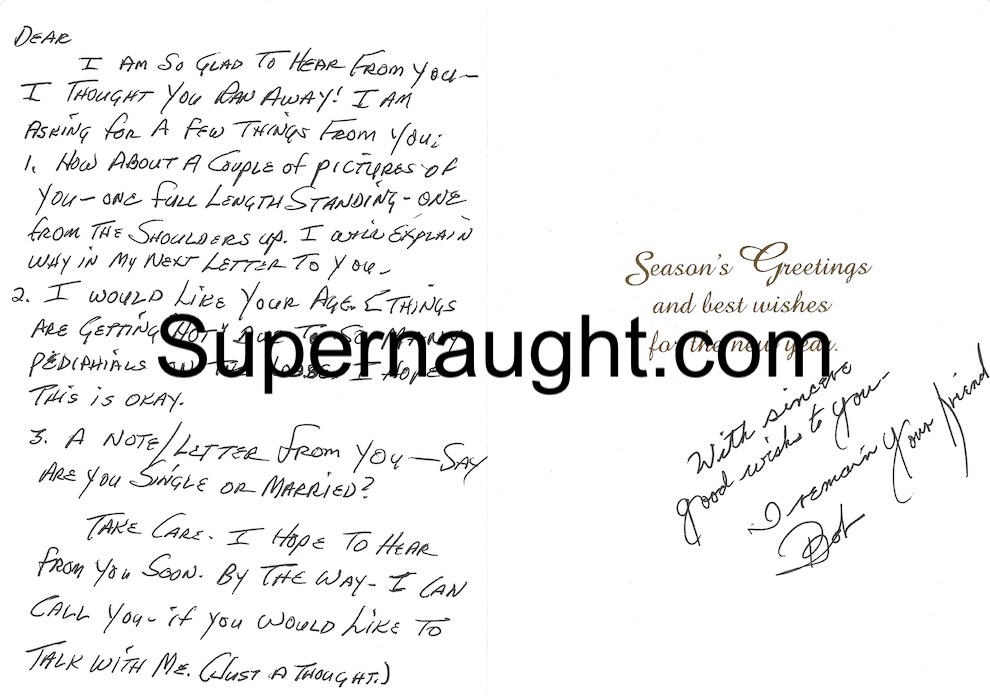 DEAR
I AM SO GLAD TO HEAR FROM YOU—
I THOUGHT YOU RAN AWAY! I AM
ASKING FOR A FEW THINGS FROM YOU:
1. HOW ABOUT A COUPLE OF PICTURES OF
YOU—ONE FULL LENGTH STANDING—ONE
FROM THE SHOULDERS UP. I WILL EXPLAIN
WHY IN MY NEXT LETTER TO YOU—
2. I WOULD LIKE YOUR AGE. THINGS
ARE GETTING "HOT" DUE TO SO MANY
PEDIPHIALS ON THE I HOPE
THIS IS OKAY.
3. A NOTE/LETTER FROM YOU—SAY
ARE YOU SINGLE OR MARRIED?
TAKE CARE. I HOPE TO HEAR
FROM YOU SOON. BY THE WAY—I CAN
CALL YOU—if YOU WOULD LIKE TO
TALK WITH ME. (JUST A THOUGHT.)
Supernaught.com
Season's Greetings
and best wishes
for the new year.
With sincere
good wishes to you—
I remain your friend
Bob